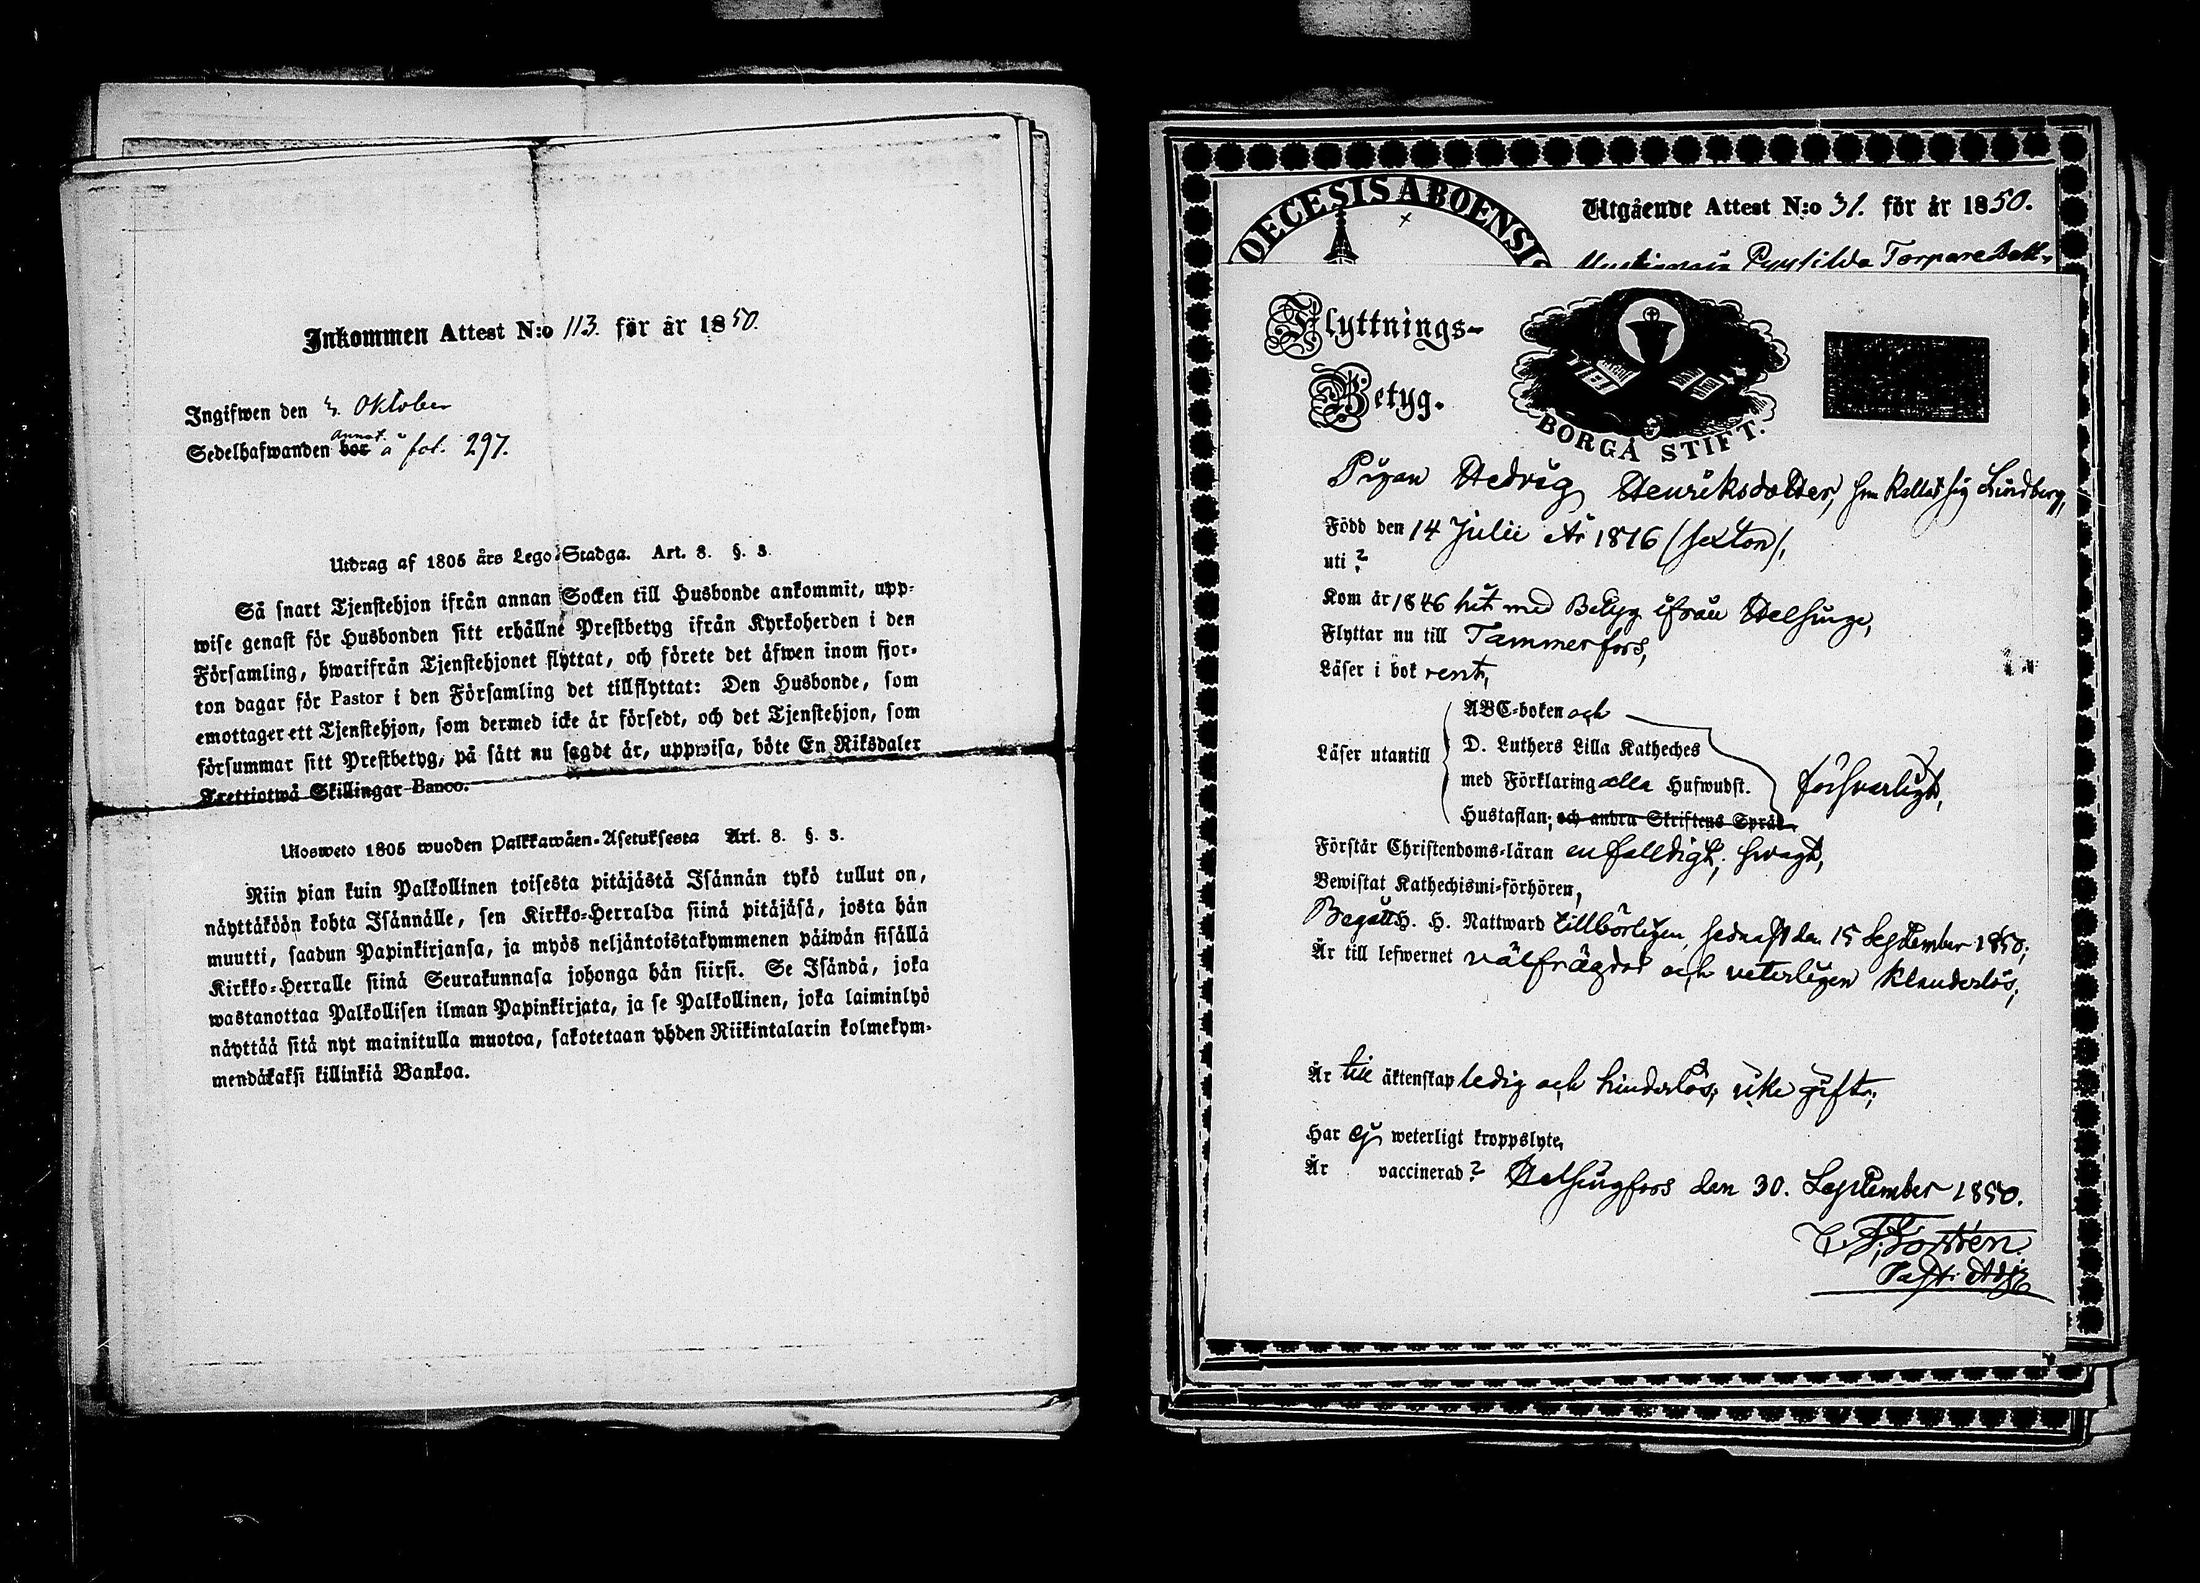 Inkommen Attest N:o 113. för år 1850.
Ingifwen den Oktober
Sedelhafwanden bor annot. å fol. 297.
Utdrag af 1805 års Lego-Stadga. Art. 8. §. 3.
Så snart Tjenstehjon ifrån annan Socken till Husbonde ankommit, upp-
wise genast för Husbonden sitt erhållne Prestbetyg ifrån Kyrkoherden i den
Församling, hwarifrån Tjenstehjonet flyttat, och förete det äfwen inom fjor-
ton dagar för Pastor i den Församling det tillflyttat: Den Husbonde, som
emottager ett Tjenstehjon, som dermed icke är försedt, och det Tjenstehjon, som
försummar sitt Prestbetyg, på sätt nu sagdt är, uppwisa, böte En Riksdaler
Trettiotwå Skillingar Banco.
Ulosweto 1805 wuoden Palkkawäen-Asetuksesta Art. 8. §. 3.
Niin pian kuin Palkollinen toisesta pitäjästä Isännän tykö tullut on,
näyttäköön kohta Isännälle, sen Kirkko-Herralda siinä pitäjäsä, josta hän
muutti, saadun Papinkirjansa, ja myös neljäntoistakymmenen päiwän sisällä
Kirkko-Herralle siinä Seurakunnasa johonga hän siirsi. Se Isändä, joka
wastanottaa Palkollisen ilman Papinkirjata, ja se Palkollinen, joka laiminlyö
näyttää sitä nyt mainitulla muotoa, sakotetaan yhden Riikintalarin kolmekym-
mendäkaksi killinkiä Bankoa.
OECESIS ABOENSI
Utgående Attest N:o 31. för år 1850.
Torpare
Flyttnings-
Betyg.
BORGÅ STIFT.
Pigan Hedvig Henriksdotter, som kallat sig Lindberg,
Född den 14 Julii År 1816 (sexton),
uti ?
Kom år 1846 hit med Betyg ifrån Helsinge,
Flyttar nu till Tammerfors,
Läser i bok rent,
ABC-boken och
Läser utantill D. Luthers Lilla Katheches
med Förklaring alla Hufwudst. försvarligt,
Hustaflan; och andra Skriftens Språk.
Förstår Christendoms-läran enfalldigt, svagt,
Bewistat Kathechismi-förhören,
Begått H. H. Nattward tillbörligen, sednast den 15 September 1850;
Är till lefwernet välfrägdad och veterligen klanderlös;
Är till äktenskap ledig och hinderlös; icke gift;
Har ej weterligt kroppslyte,
Är vaccinerad? Helsingfors den 30. September 1850.
Past. Adj.